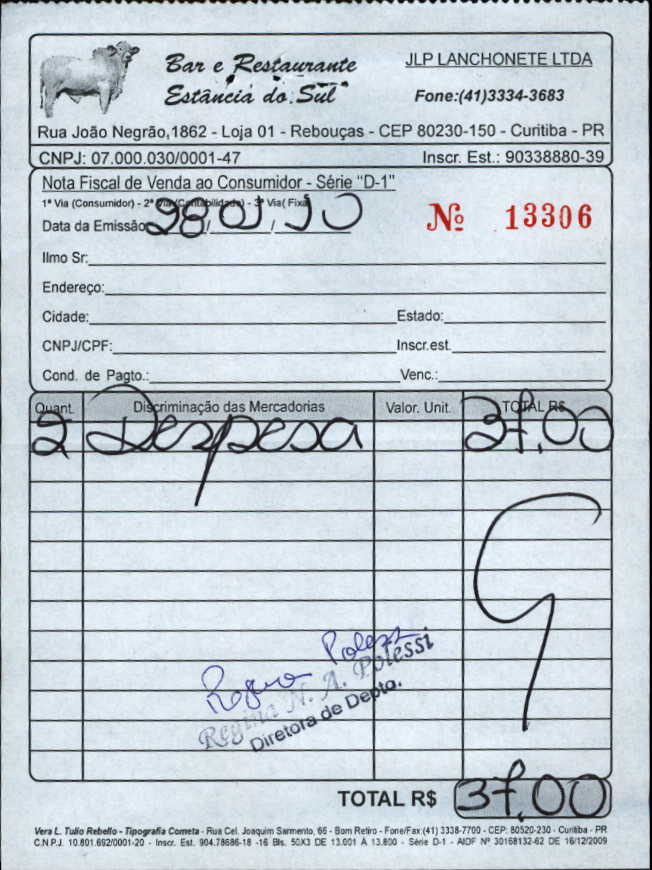 Bar e Restaurante
Estância do Sul
JLP LANCHONETE LTDA
Fone:(41)3334-3683
Rua João Negrão,1862 - Loja 01 - Rebouças - CEP 80230-150 - Curitiba - PR
CNPJ: 07.000.030/0001-47 Inscr. Est.: 90338880-39
Nota Fiscal de Venda ao Consumidor - Série "D-1"
1ª Via (Consumidor) - 2ª Via (Contabilidade) - 3ª Via( Fixa)
Data da Emissão 28/01/10 Nº 13306
Ilmo Sr:
Endereço:
Cidade: Estado:
CNPJ/CPF: Inscr.est.
Cond. de Pagto.: Venc.:
Quant. Discriminação das Mercadorias Valor. Unit. TOTAL R$
2 Despesa 37,00
Regina Polessi
Regina N. A. Polessi
Diretora de Depto.
TOTAL R$ 37,00
Vera L. Tulio Rebello - Tipografia Cometa - Rua Cel. Joaquim Sarmento, 66 - Bom Retiro - Fone/Fax:(41) 3338-7700 - CEP: 80520-230 - Curitiba - PR
C.N.P.J. 10.801.692/0001-20 - Inscr. Est. 904.78686-18 -16 Bls. 50X3 DE 13.001 À 13.800 - Série D-1 - AIDF Nº 30168132-62 DE 16/12/2009